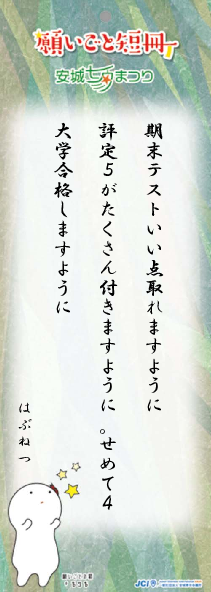 願いごと短冊
安城七夕まつり
期末テストいい点取れますように
評定5がたくさん付きますように。せめて4
大学合格しますように
はぶねつ
JCI